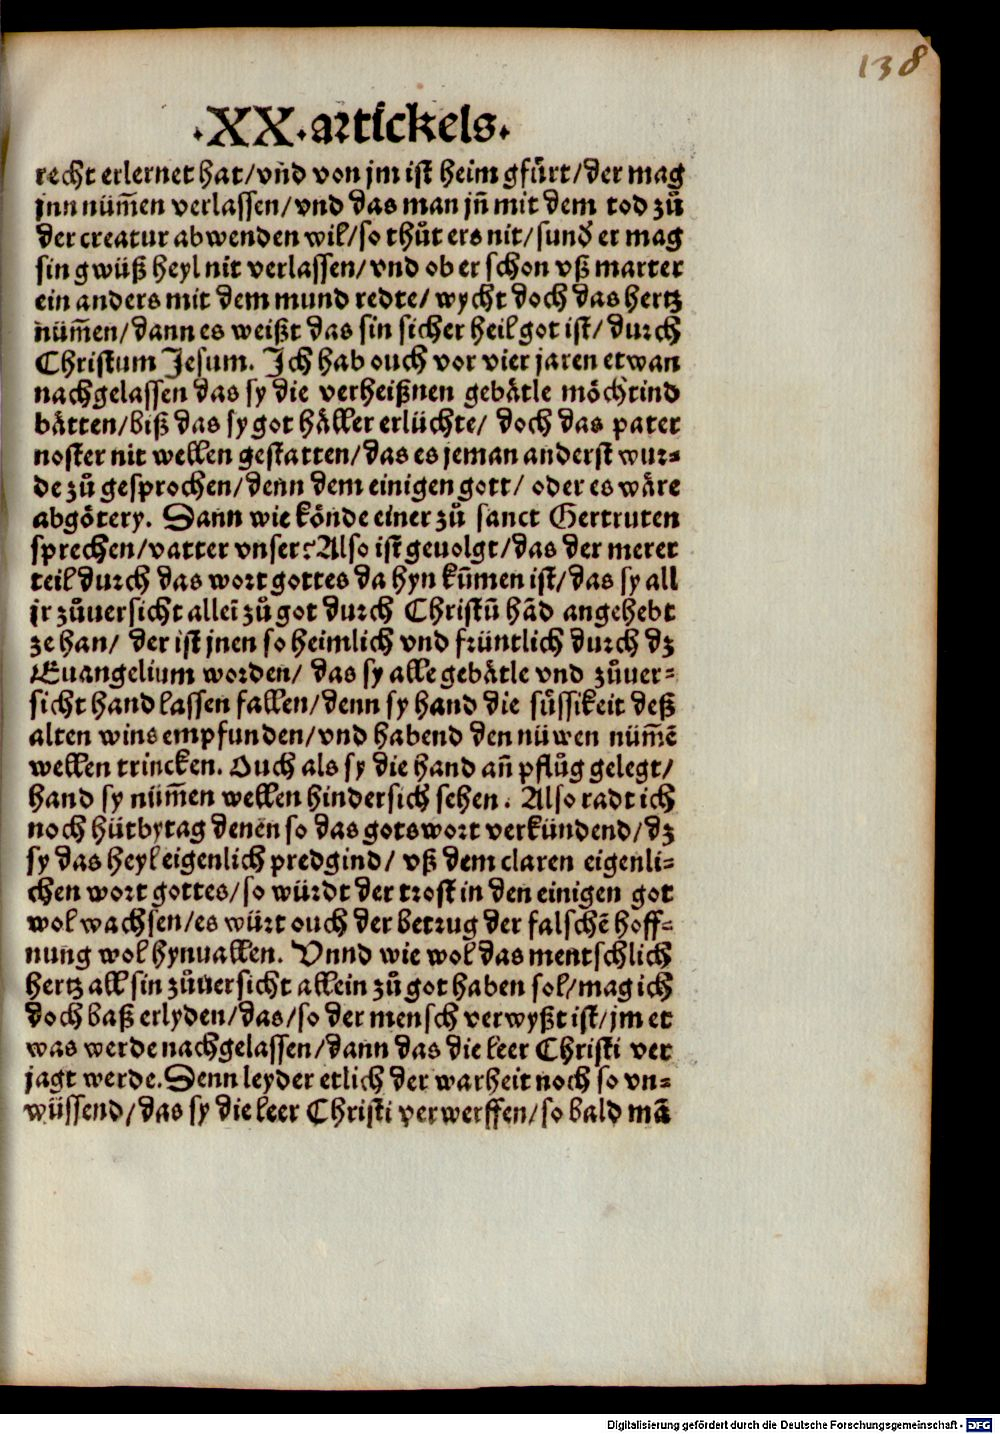 138
.XX.artickels.
recht erlernet hat/vnd von jm ist heim gfürt/der mag
jnn nüm̄en verlassen/vnd das man jn̄ mit dem tod zů
der creatur abwenden wil/so thůt ers nit/sund̛ er mag
sin gwüß heyl nit verlassen/vnd ob er schon vß marter
ein anders mit dem mund redte/wycht doch das hertz
nüm̄en/dann es weißt das sin sicher heil got ist/durch
Christum Jesum. Ich hab ouch vor vier jaren etwan
nachgelassen das sy die verheißnen gebätle möchtind
bätten/biß das sy got häller erlüchte/ doch das pater
noster nit wellen gestatten/das es jeman anderst wur⸗
de zů gesprochen/denn dem einigen gott/ oder es wäre
abgötery. Dann wie könde einer zů sanct Gertruten
sprechen/vatter vnser? Also ist geuolgt/das der merer
teil durch das wort gottes da hyn kum̄en ist/das sy all
jr zůuersicht allei̅ zů got durch Christū hād angehebt
ze han/ der ist jnen so heimlich vnd früntlich durch dz
Euangelium worden/ das sy alle gebätle vnd zůuer⸗
sicht hand lassen fallen/denn sy hand die süssikeit deß
alten wins empfunden/vnd habend den nüwen nüm̄ē
wellen trincken. Ouch als sy die hand an̄ pflůg gelegt/
hand sy nüm̄en wellen hindersich sehen. Also radt ich
noch hütbytag denen so das gotswort verkündend/dz
sy das heyl eigenlich predgind/ vß dem claren eigenli⸗
chen wort gottes/so würdt der trost in den einigen got
wol wachsen/es würt ouch der betrug der falschē hoff⸗
nung wol hynuallen. Vnnd wie wol das mentschlich
hertz all sin zůuersicht allein zů got haben sol/mag ich
doch baß erlyden/das/so der mensch verwyßt ist/jm et
was werde nachgelassen/dann das die leer Christi ver
jagt werde. Denn leyder etlich der warheit noch so vn⸗
wüssend/das sy die leer Christi verwerffen/so bald mā
Digitalisierung gefördert durch die Deutsche Forschungsgemeinschaft - DFG